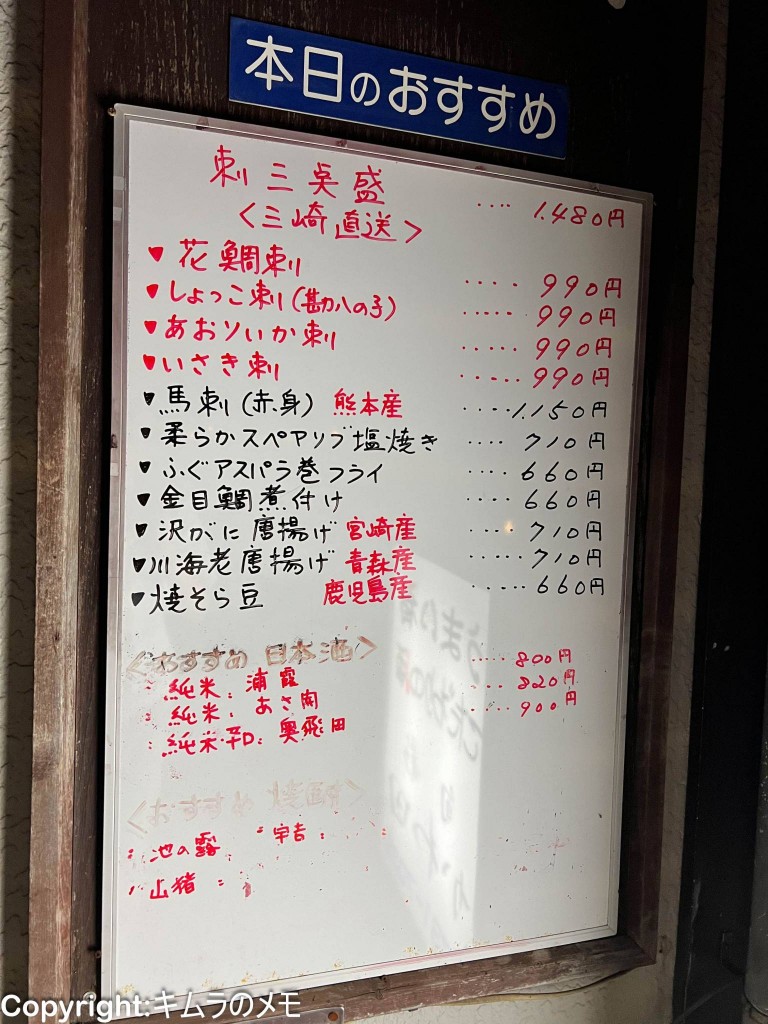 本日のおすすめ
刺三点盛 ···· 1.480円
<三崎直送>
▾花鯛刺 ···· 990円
▾しょっこ刺(勘八の子) ····· 990円
▾あおりいか刺 ····· 990円
▾いさき刺 ····· 990円
▾馬刺(赤身) 熊本産 ····1.150円
▾柔らかスペアリブ塩焼き ···· 710円
▾ふぐアスパラ巻フライ ···· 660円
▾金目鯛煮付け ···· 660円
▾沢がに唐揚げ 宮崎産 ····· 710円
▾川海老唐揚げ 青森産 ····· 710円
▾焼そら豆 鹿児島産 ····· 660円
<おすすめ 日本酒>
: 純米: 浦霞 ···· 800円
: 純米: あさ開 ···· 820円
: 純米辛口: 奥飛田 ···· 900円
<おすすめ 焼酎>
: 池の露 : 宇吉 :
: 山猪 :
Copyright:キムラのメモ